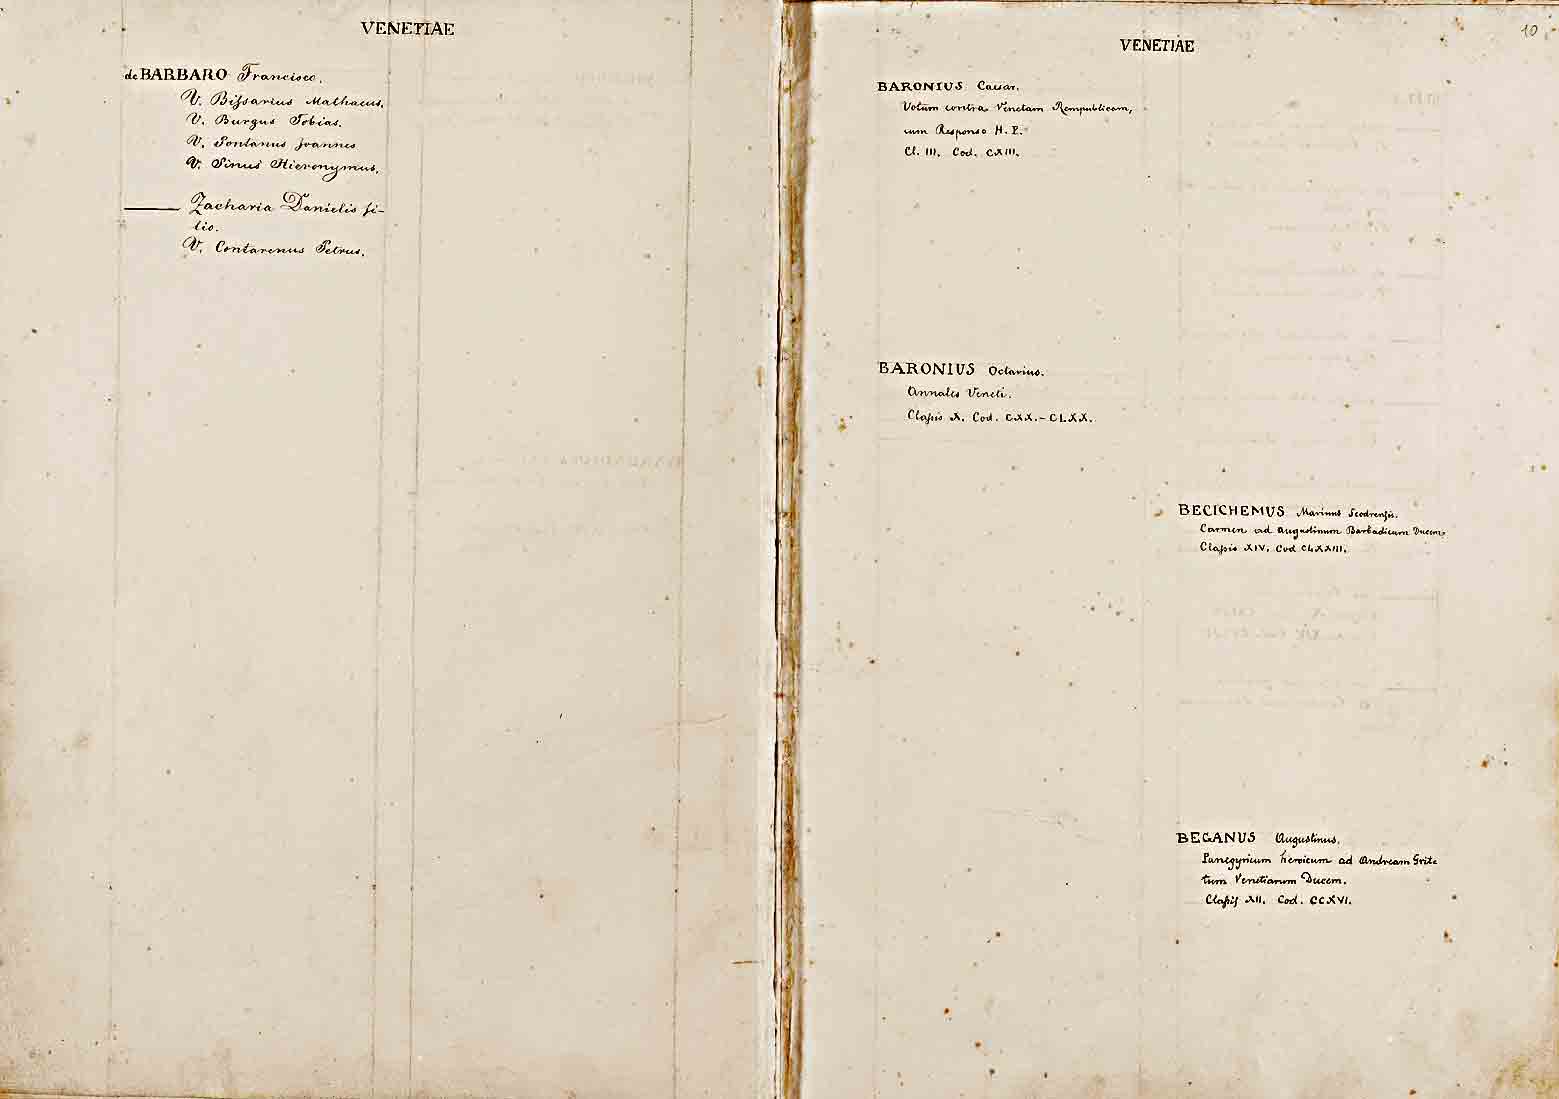 VENETIAE
de BARBARO Francisco.
V. Biſsarius Mathaeus.
V. Burgus Tobias.
V. Pontanus Joannes
V. Sinus Hieronymus.
——— Zacharia Danielis fi-
lio.
V. Contarenus Petrus.
10
VENETIAE
BARONIUS Caesar.
Votum contra Venetam Rempublicam,
cum Responso H. P.
Cl. III. Cod. CXIII.
BARONIUS Octavius.
Annales Veneti.
Claſsis X. Cod. CXX.-CLXX.
BECICHEMUS Marinus Scodrensis.
Carmen ad Augustinum Barbadicum Ducem.
Claſsis XIV. Cod CLXXIII.
BEGANUS Augustinus.
Panegyricum heroicum ad Andream Grit-
tum Venetiarum Ducem.
Claſsis XII. Cod. CCXVI.